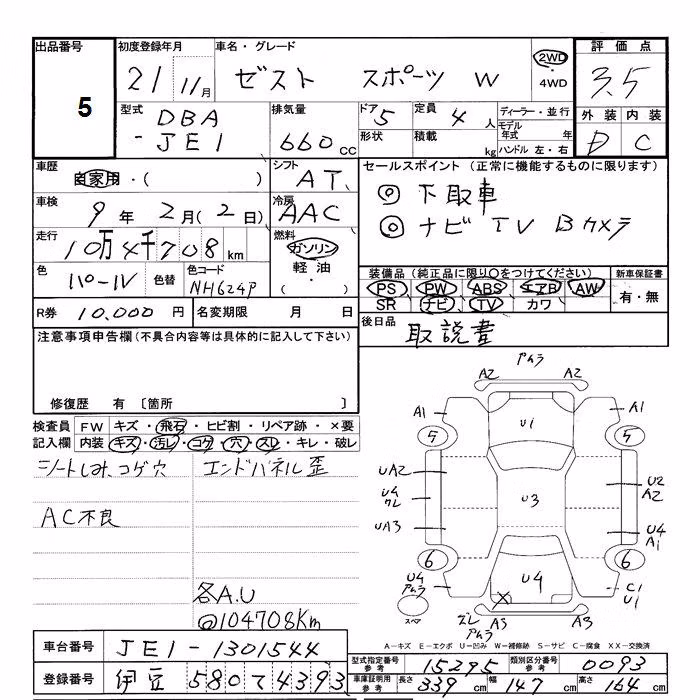 出品番号 5
初度登録年月 21 11月
車名・グレード ゼスト スポーツ W
2WD ・ 4WD
評価点 3.5
型式 DBA - JE1
排気量 660 cc
ドア 5
定員 4 人
ディーラー・並行
モデル年式 年
形状
積載 kg
ハンドル 左・右
外装 内装
D C
車歴 自家用・( )
シフト AT
セールスポイント(正常に機能するものに限ります)
◎ 下取車
◎ ナビ TV Bカメラ
車検 9年 2月(2日)
冷房 AAC
走行 10万4千708 km
燃料 ガソリン 軽油 ・( )
色 パールV
色替
色コード NH624P
装備品(純正品に限り○をつけてください)
新車保証書
PS PW ABS エアB AW
SR ナビ TV カワ
有・無
R券 10,000 円
名変期限 月 日
後日品 取説書
注意事項申告欄(不具合内容等は具体的に記入して下さい)
修復歴 有 〔箇所 〕
検査員記入欄
FW キズ・飛石・ヒビ割・リペア跡・×要
内装 キズ・汚レ・コゲ・穴・スレ・キレ・破レ
シートしみ、コゲ穴
エンドパネル歪
AC不良
各A.U
@104708Km
アムラ
A2 A2
A1 U1 A1
5 5
UA2 U2 A2
U4 クレ U3
UA3 U4 A1
6 6
U4 アムラ U4 C1 U1
スペア ズレ A3 アムラ A3
A-キズ E-エクボ U-凹み W-補修跡 S-サビ C-腐食 XX-交換済
車台番号 JE1-1301544
型式指定番号 参考 15295
類別区分番号 参考 0093
登録番号 伊豆 580 て 4393
車庫証明用 参考 長さ 339 cm 幅 147 cm 高さ 164 cm